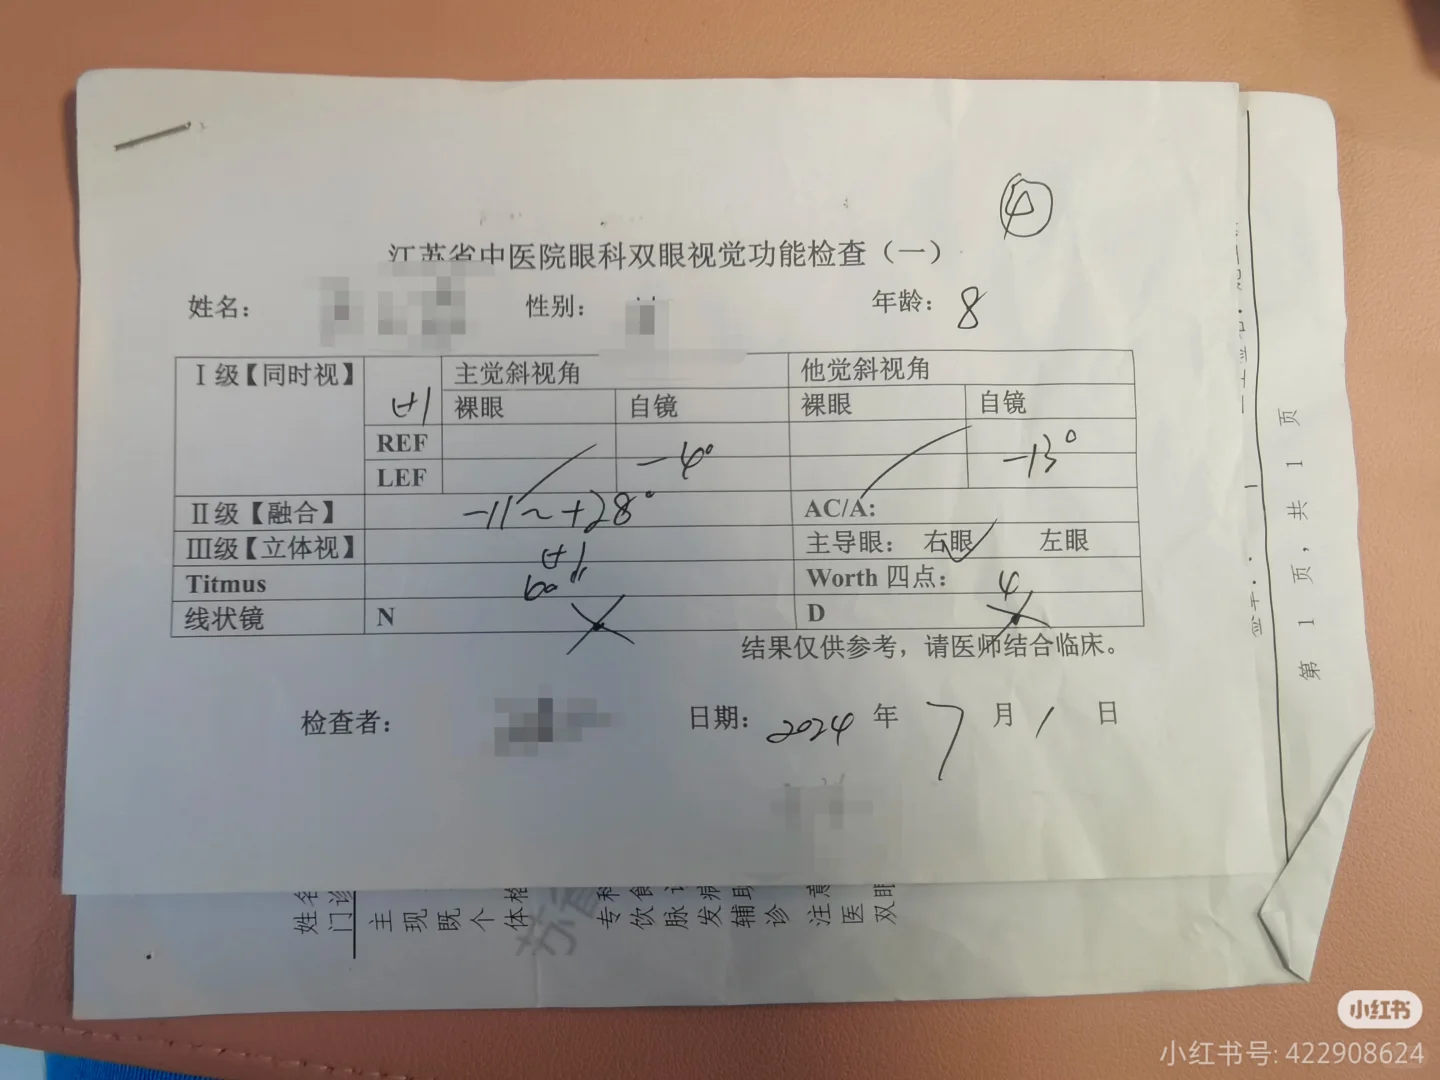 ④
江苏省中医院眼科双眼视觉功能检查（一）
姓名： 性别： 年龄：8
Ⅰ级【同时视】 主觉斜视角 他觉斜视角
裸眼 自镜 裸眼 自镜
REF
LEF -4° -13°
Ⅱ级【融合】 -11~+28° AC/A:
Ⅲ级【立体视】 主导眼： 右眼 ✓ 左眼
Titmus 60" Worth 四点： 4
线状镜 N D
结果仅供参考，请医师结合临床。
检查者： 日期：2024 年 7 月 1 日
第 1 页，共 1 页
姓名
门诊
主
现
既
个
体格
专科
饮食
脉
发病
辅助
诊
注意
医
双眼
小红书
小红书号: 422908624